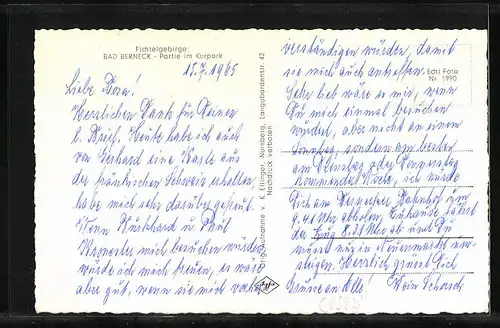 Fichtelgebirge:
BAD BERNECK - Partie im Kurpark
15.7.1965
Liebe
Herzlichen Dank für Deinen
l. Brief. Heute habe ich auch
von Gerhard eine Karte aus
der fränkischen Schweiz erhalten,
habe mich sehr darüber gefreut.
Wenn Burkhard u. Paul
mich besuchen würden,
würde ich mich freuen, es wäre
aber gut, wenn sie mich vorher
Original-Aufnahme v. K. Ettlinger, Nürnberg, Langobardenstr. 42
Nachdruck verboten
verständigen würden, damit
sie mich auch antreffen.
Sehr lieb wäre es mir, wenn
Du mich einmal besuchen
würdest, aber nicht an einem
Sonntag, sondern am besten
am Dienstag oder Donnerstag
kommender Woche, ich würde
Dich am Bahnhof um
9.41 Uhr abholen. Zuhause fährt
der Zug 8.21 Uhr ab und Du
musst nur in Neuenmarkt um-
steigen. Herzlich grüsst Dich
Grüsse an Alle! Dein
Echt Foto
Nr. 1990